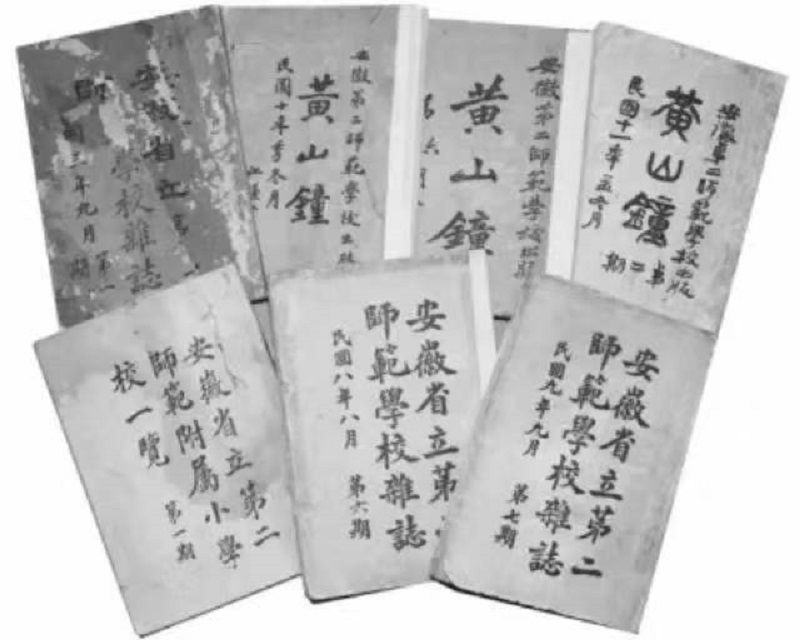 安徽省立
師
學校雜誌
年九月
安徽第二師範學校出版
黃山鐘
民國十年季冬月
安徽第二師範學校出版
黃山鐘
安徽第二師範學校出版
黃山鐘
民國十一年
期
安徽省立第二
師範附属小學
校一覽
第一期
安徽省立第
師範學校雜誌
民國八年八月
第六期
安徽省立第二
師範學校雜誌
民國九年九月
第七期